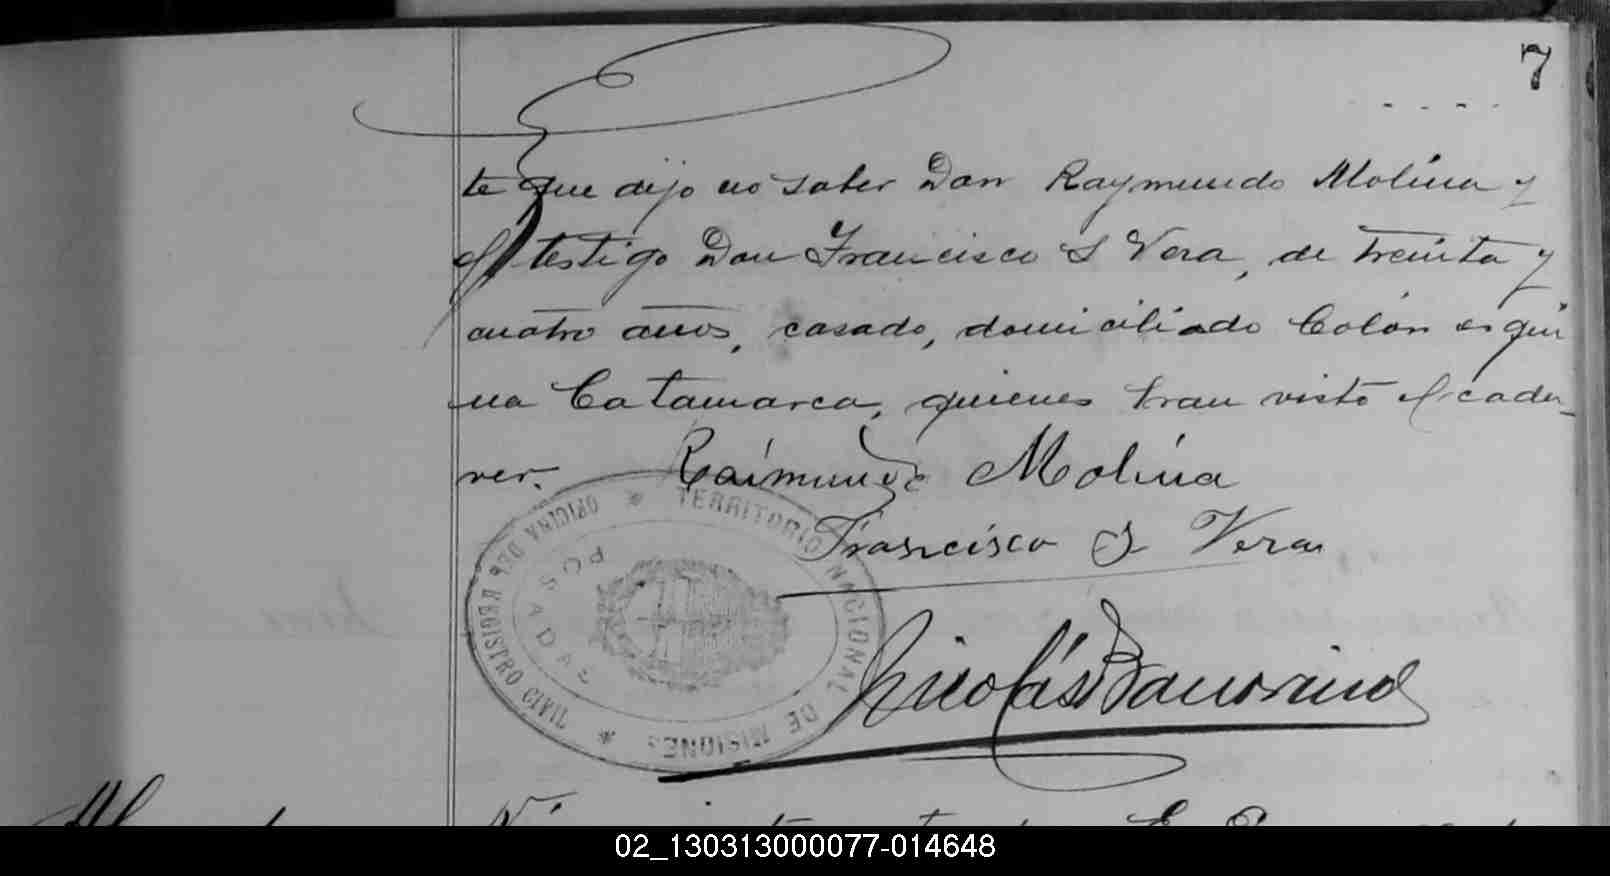 7
te que dijo no saber Don Raymundo Molina y
el testigo Don Francisco S Vera, de treinta y
cuatro años, casado, domiciliado Colón esqui
na Catamarca, quienes han visto el cada-
ver. Raimundo Molina
Francisco S Vera
Nicolás
OFICINA DEL REGISTRO CIVIL * TERRITORIO NACIONAL DE MISIONES *
POSADAS
02_130313000077-014648